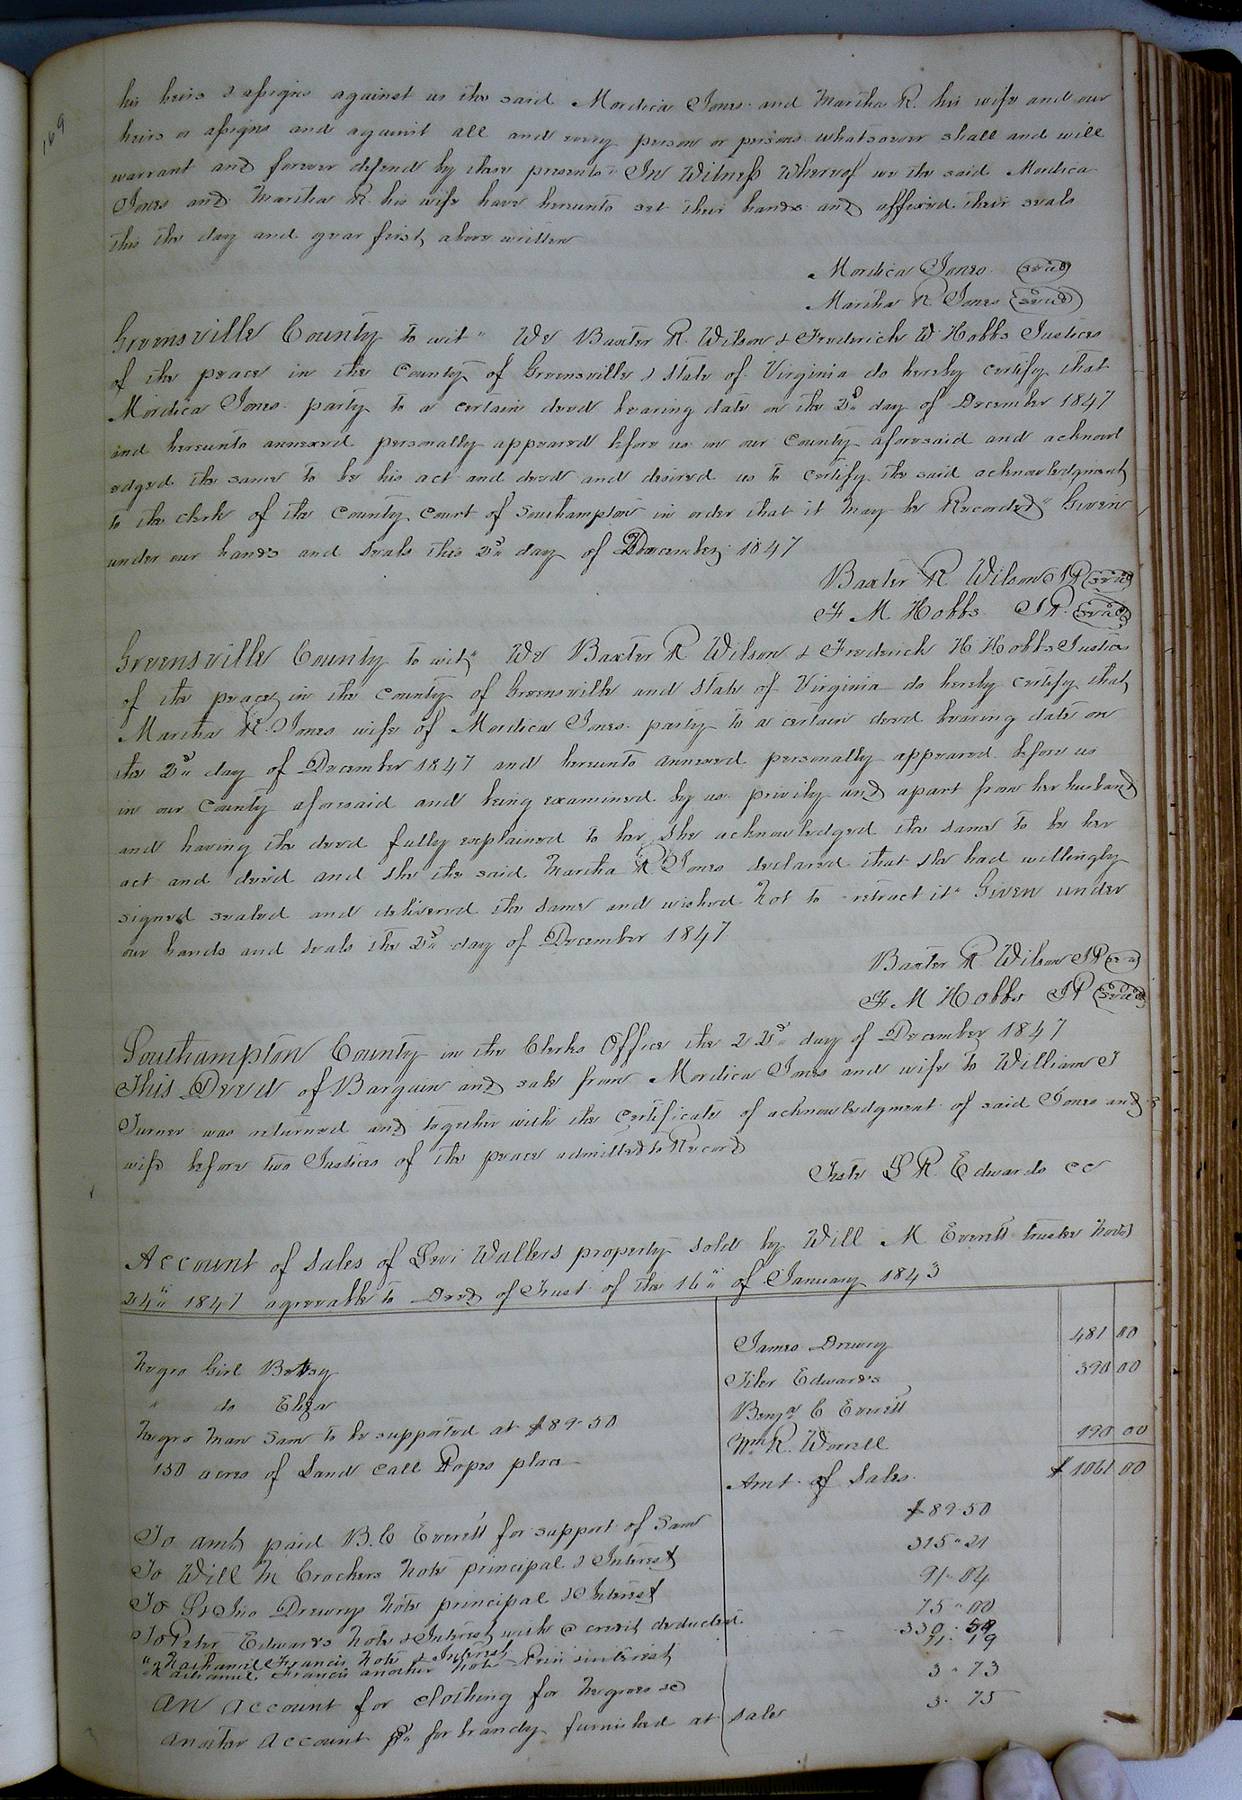 169
his heirs & assigns against us the said Mordica Jones and Martha R. his wife and our
heirs or assigns and against all and every person or persons whatsoever shall and will
warrant and forever defend by these presents" In Witness Whereof we the said Mordica
Jones and Martha R. his wife have hereunto set their hands and affixed their seals
this the day and year first above written
Mordica Jones (seal)
Martha R Jones (seal)
Greensville County to wit" We Baxter R. Wilson & Frederick W. Hobbs Justices
of the peace in the County of Greensville & State of Virginia do hereby certify that
Mordica Jones party to a certain deed bearing date on the day of December 1847
and hereunto annexed personally appeared before us in our County aforesaid and acknowl
edged the same to be his act and deed and desired us to certify the said acknowledgment
to the clerk of the County Court of Southampton in order that it may be Recorded" Given
under our hands and seals this day of December 1847
Baxter R Wilson JP (seal)
F M Hobbs JP. (seal)
Greensville County to wit" We Baxter R Wilson & Frederick H Hobbs Justices
of the peace in the County of Greensville and State of Virginia do hereby certify that
Martha R. Jones wife of Mordica Jones party to a certain deed bearing date on
the day of December 1847 and hereunto annexed personally appeared before us
in our County aforesaid and being examined by us privily and apart from her husband
and having the deed fully explained to her, she acknowledged the same to be her
act and deed and she the said Martha R Jones declared that she had willingly
signed sealed and delivered the same and wished not to retract it" Given under
our hands and seals the day of December 1847
Baxter R. Wilson JP (seal)
F M Hobbs JP (seal)
Southampton County in the Clerks Office the day of December 1847
This Deed of Bargain and sale from Mordica Jones and wife to William J
Turner was returned and together with the certificate of acknowledgment of said Jones and
wife before two Justices of the peace admitted to Record
Teste L R. Edwards CC
Account of Sales of Levi Wallers property sold by Will M Everett trustee
24" 1847 agreeable to Deed of Trust of the 16" of January 1843
Negro Girl Betsy James Drewry 481 00
" do Eliza Edwards 390 00
Negro Man Sam to be supported at $89.50 Benj C Everett
150 acres of Land call Ropes place Wm R. Worrell 190 00
Amt. of Sales. $1061 00
To amt paid B. C Everett for support of Sam $89.50
To Will M Crockers Note principal & Interest 315"21
To Jno Drewrys Note principal & Interest 91.04
To Peter Edwards Note & Interest with a credit deducted 75"00
" Nathaniel Francis Note & Interest 330.50
" Nathaniel Francis another Note Prin & interest 71.19
An Account for clothing for Negroes &c 3"73
Another Account for brandy furnished at sales 3.75